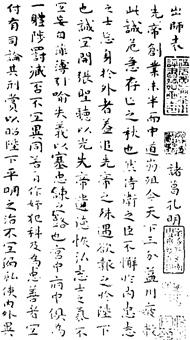 出師表 諸葛孔明
先帝創業未半而中道崩殂今天下三分益州疲敝
此誠危急存亡之秋也然侍衛之臣不懈於內忠志
之士忘身於外者蓋追先帝之殊遇欲報之於陛下
也誠宜開張聖聽以光先帝遺德恢弘志士之氣不
宜妄自菲薄引喻失義以塞忠諫之路也宮中府中俱為
一體陟罰臧否不宜異同若有作奸犯科及為忠善者宜
付有司論其刑賞以昭陛下平明之治不宜偏私使內外異